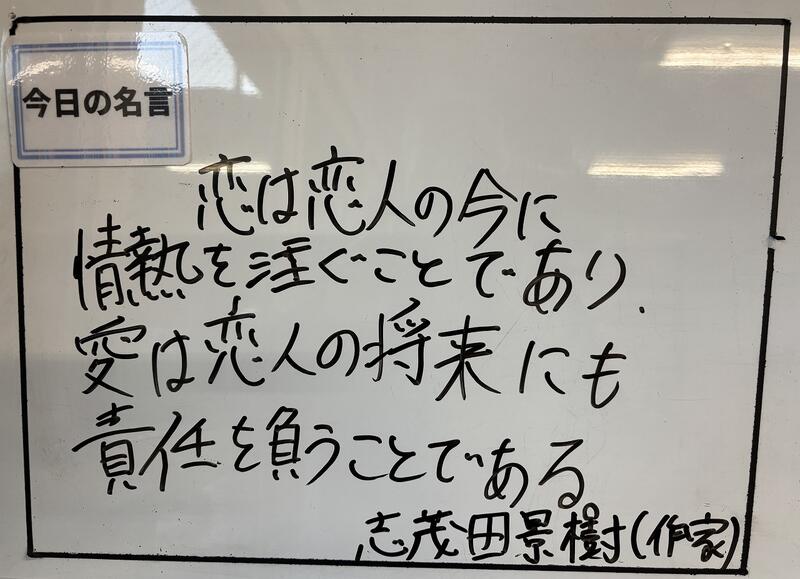 今日の名言
恋は恋人の今に
情熱を注ぐことであり、
愛は恋人の将来にも
責任を負うことである。
志茂田景樹(作家)